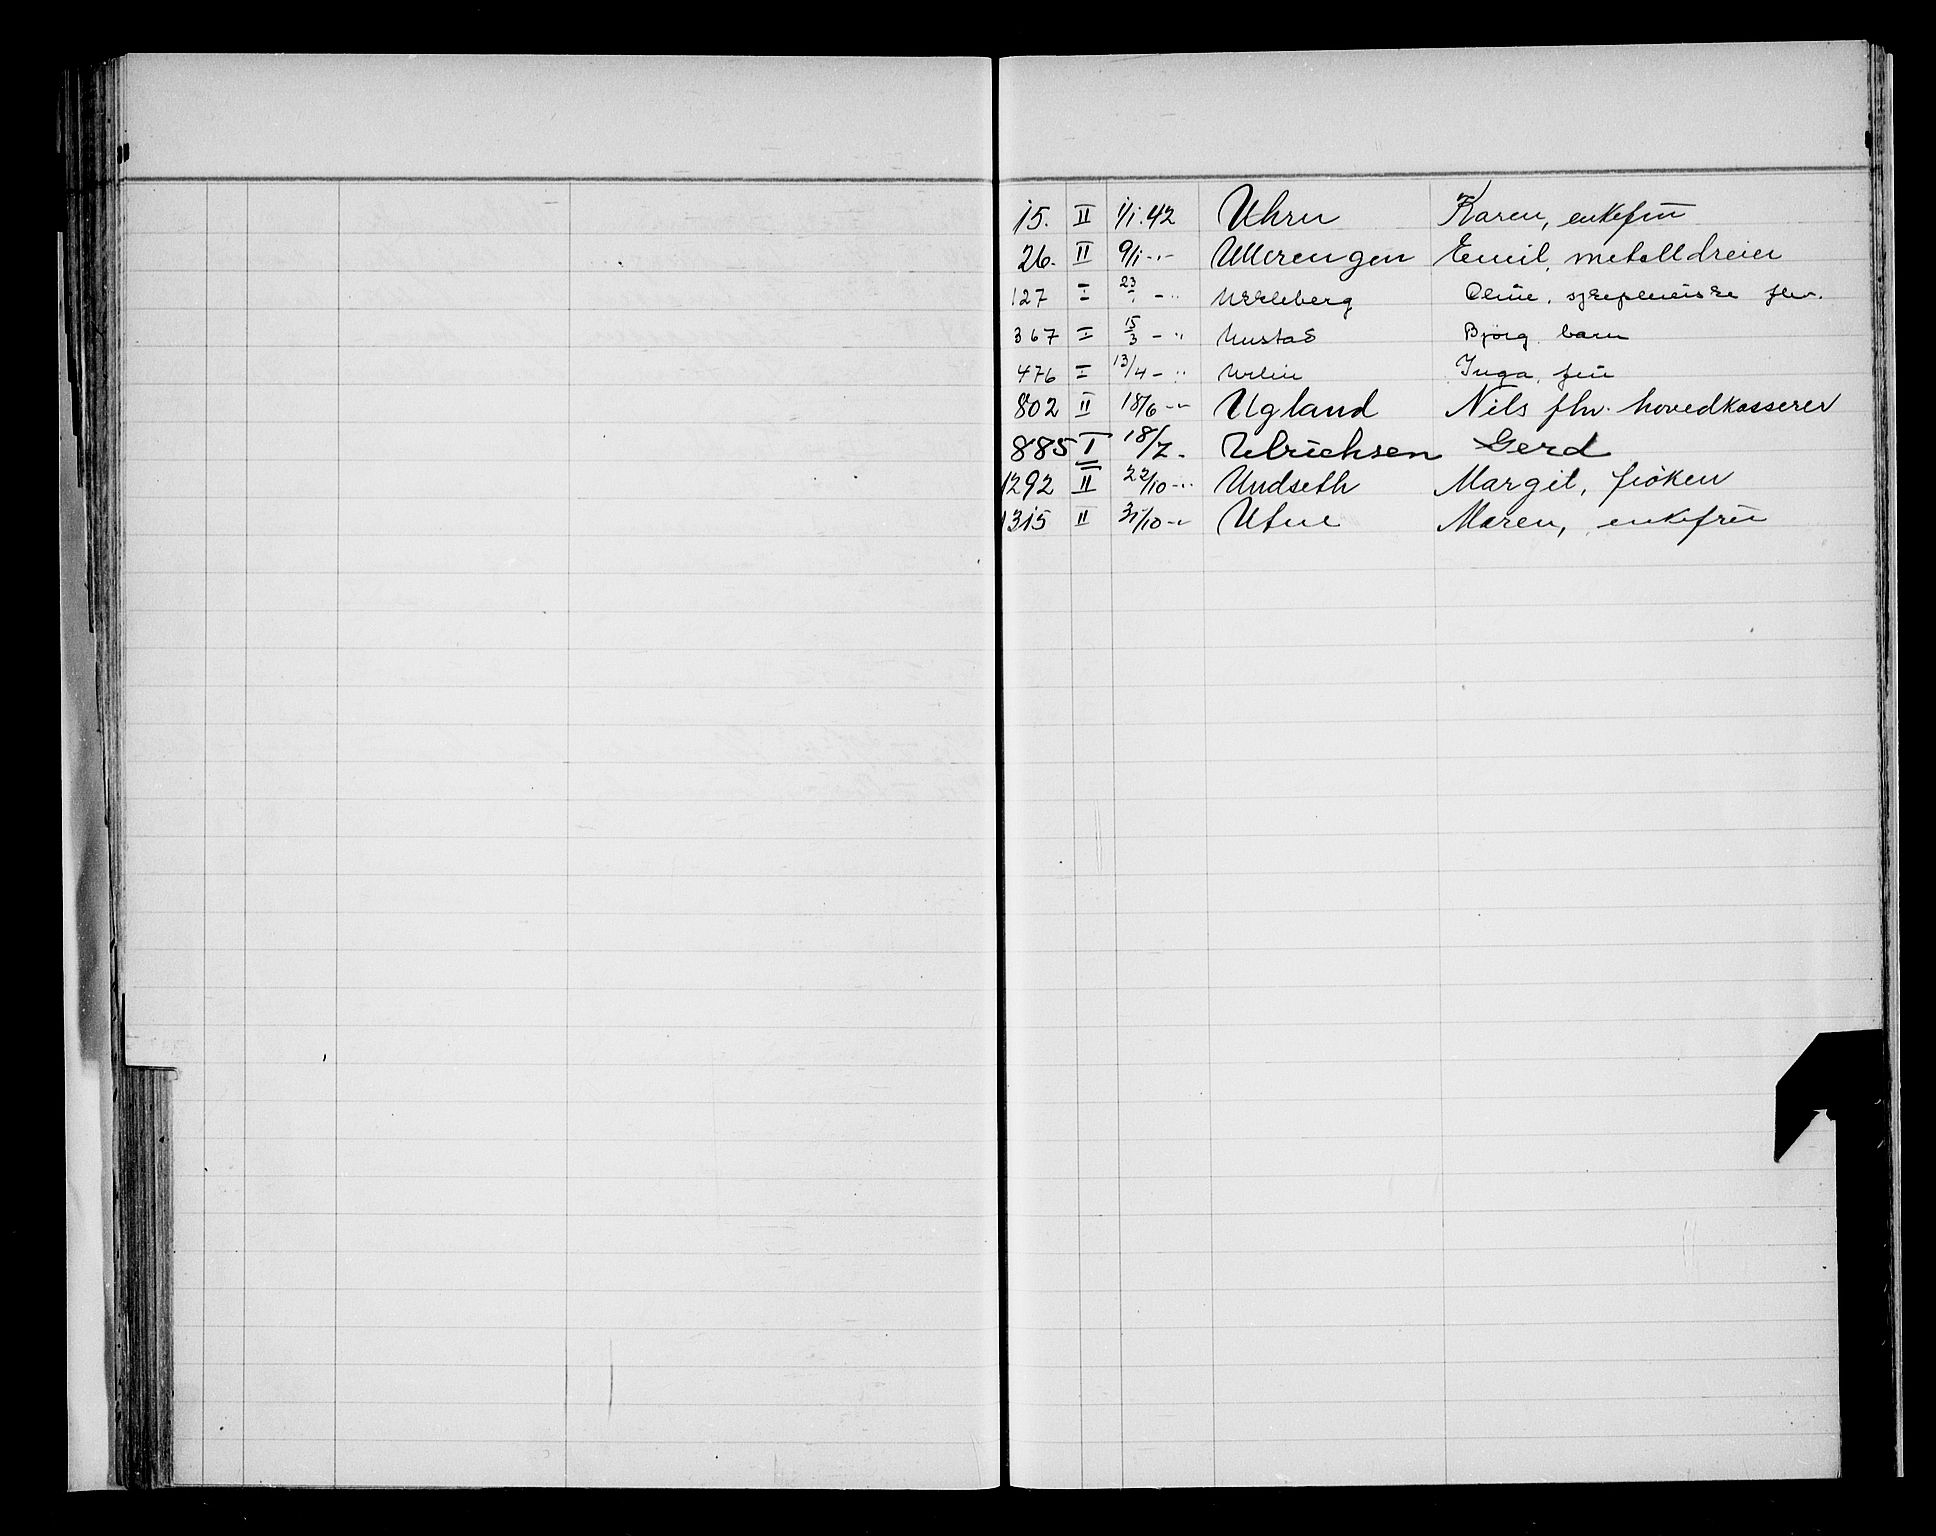 15. II 1/1.42 Uhrn Karen, enkefrū
26. II 9/1 -"- Ullerengen Emil, metalldreier
127 I 23/1 -" Oline,
367 I 15/3 -" Bjørg barn
476 I 13/4 -" Inga, frū
802 II 18/6 -"- Ugland Nils fhv. hovedkasserer
885 I 18/7 - Ulrichsen Gerd
1292 II 22/10 -"- Undseth Margit, frøken
1315 II 31/10 -"- Utne Maren, enkefrū